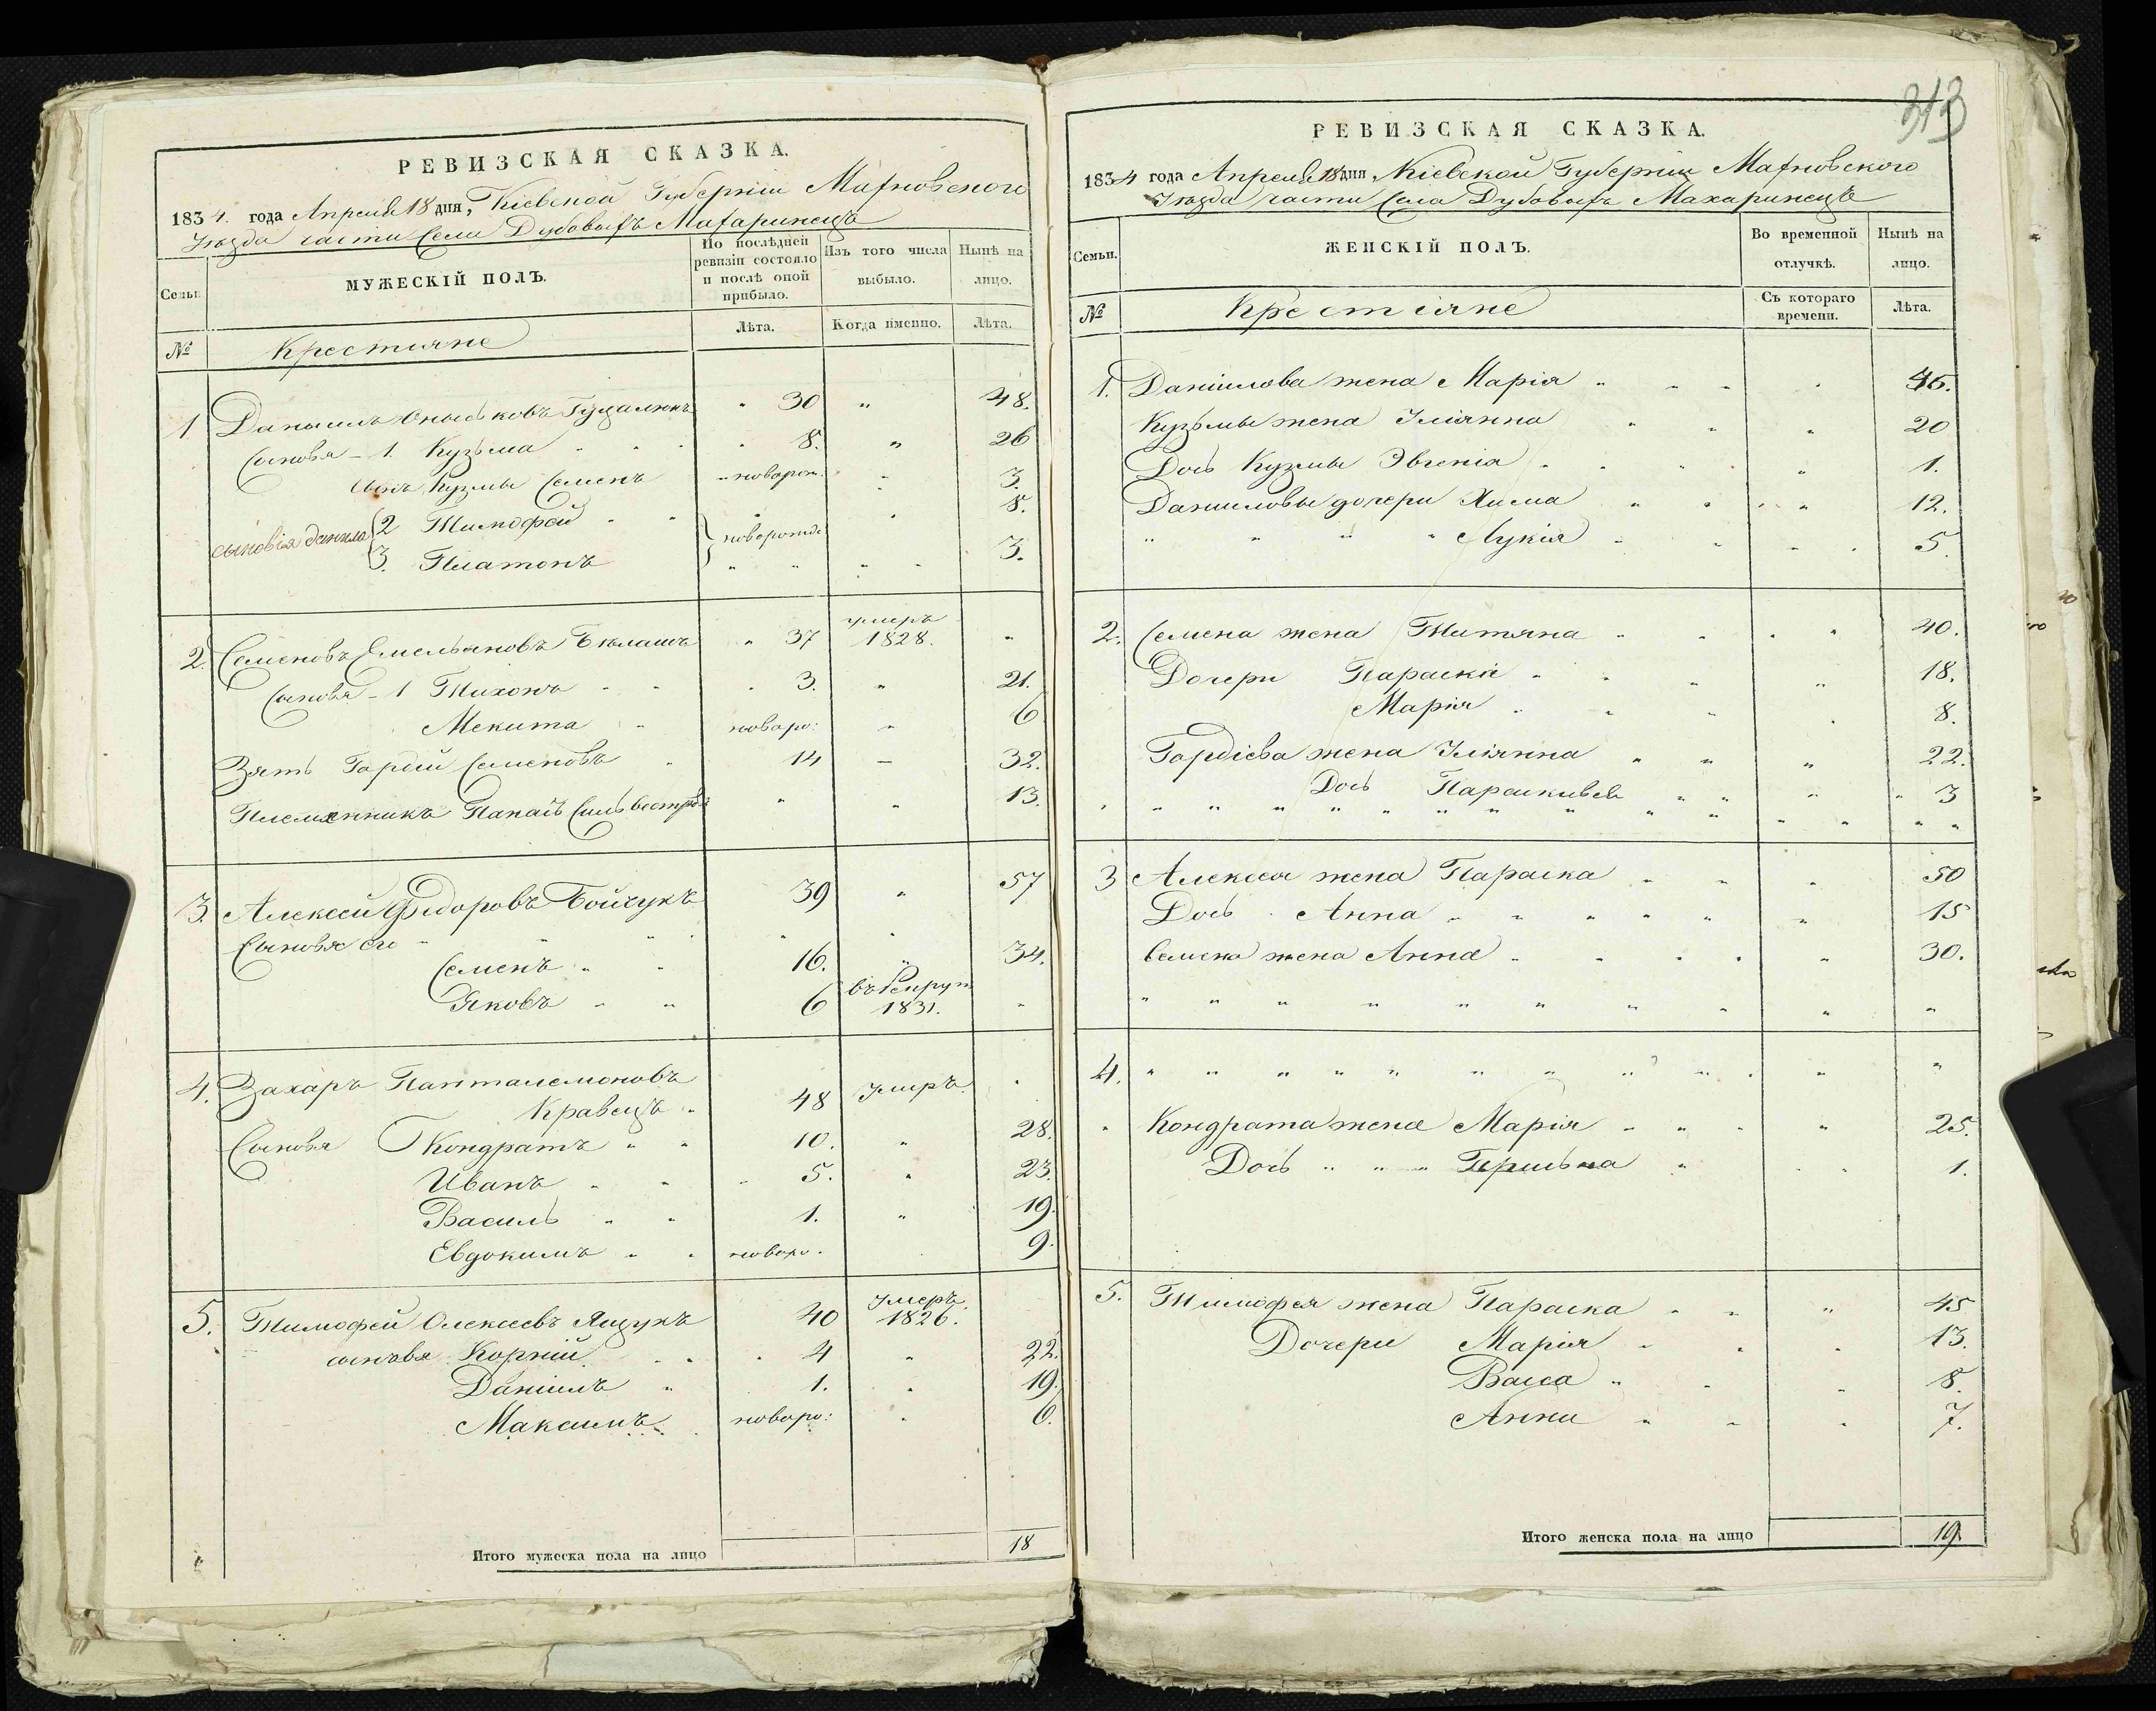 РЕВИЗСКАЯ СКАЗКА.
1834. года Апреля 18 дня, Кіевской Губерніи Махновского
Уезда части Села Дубовыхъ Махаринецъ
Семьи.
МУЖЕСКІЙ ПОЛЪ.
По послѣдней ревизіи состояло и послѣ оной прибыло.
Изъ того числа выбыло.
Нынѣ на лицо.
№
Крестияне
Лѣта.
Когда именно.
Лѣта.
1 Данымлъ Оныськовъ " 30 " 48.
Сыновья - 1. Кузьма " 8. " 26
Сынъ Кузмы Семенъ " новорож: " 3.
сыновія данила 2 Тимофей " новорожде " 8.
3. Платонъ " " " 3.
2. Семеновъ Емельяновъ " 37 умеръ 1828. "
Сыновья - 1 Тихонъ " 3. " 21.
Мекита " новоро: " 6
Зять Гордій Семеновъ " 14 — 32.
Племянникъ Панасъ Сильвестровъ " " 13.
3. Алексей Федоровъ Бойчукъ 39 " 57
Сыновя его " " " "
Семенъ " " 16. " 34.
Яковъ " " 6 въ Рекрут 1831. "
4. Захаръ Панталемоновъ
Кравецъ " 48 умиръ. "
Сыновя Кондратъ " " 10. " 28.
Иванъ " " 5. " 23.
Василь " " 1. " 19.
Евдокимъ " " новоро. 9.
5. Тимофей Олексеевъ Ящукъ 40 Умеръ. 1826.
сыновья Корній " 4 " 22.
Даніилъ " 1. " 19.
Максимъ новоро: " 6.
Итого мужеска пола на лицо 18
313
РЕВИЗСКАЯ СКАЗКА.
1834 года Апреля 18 дня, Кіевской Губерніи Махновского
Уезда части Села Дубовыхъ Махаринецъ
Семьи.
ЖЕНСКІЙ ПОЛЪ.
Во временной отлучкѣ.
Нынѣ на лицо.
№
Крестіяне
Съ котораго времени.
Лѣта.
1. Даніилова жена Марія " " " " 46.
Кузьмы жена Уліянна " " " 20
Дочь Кузмы Эвгенія " " " " 1.
Даниловы дочери Хима " " " " 12.
" " " " Лукія " " " " 5.
2. Семена жена Татяна " " " " 40.
Дочери Параскія " " " " 18.
Марія " " " " 8.
Гордіева жена Уліянна " " " 22.
Дочь Параскивея " " " " 3
" " " " " " " " " " " " " " "
3 Алексея жена Параска " " " 50
Дочь . Анна " " " " " " 15
Семена жена Анна " " " " " 30.
" " " " " " " " " "
4. " " " " " " " " " " "
" Кондрата жена Марія " " " " 25.
Дочь " " " " " " 1.
5. Тимофея жена Параска " " " 45
Дочери Марія " " " 13.
Васса " " " 8.
Анна " " " 7.
Итого женска пола на лицо 19.